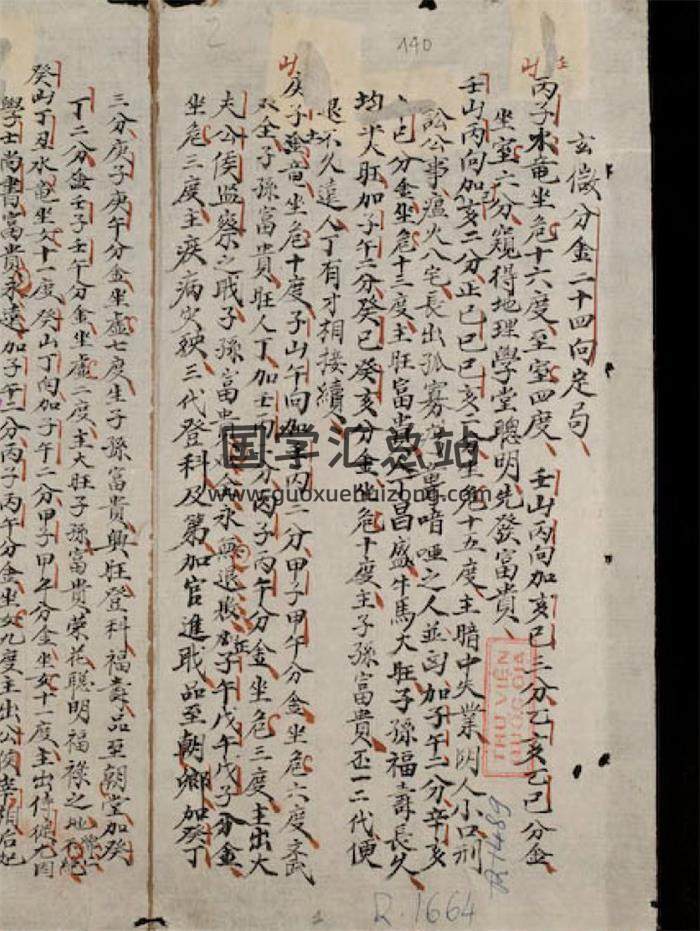 140
玄微分金二十四向定局
丙子水竜坐危十六度至室四度、壬山丙向加亥巳二分乙亥乙巳分金
坐室六分窺得地理學堂聰明先發富貴、
壬山丙向加亥二分正巳巳巳亥分坐危十五度主暗中失業阴人小口刑
訟公事瘟火八宅長出孤寡喑啞之人並丙加子午二分辛亥
巳分金坐危十三度主旺富貴人丁昌盛牛馬大旺子孫福壽長久
均半大旺加子午二分癸巳癸亥分金坐危十度主子孫富貴一二代便
退不久遠人丁有才相接續、
庚子金竜坐危十度子山午向加壬丙二分甲子甲午分金坐危六度文武
双全子孫富貴旺人丁加壬丙分丙子丙午分金坐危三度主出大
夫公侯監察之戝子孫富貴永無退敗加子午戊午戊子分金
坐危三度主疾病灾殃三代登科及第加官進戝品至朝鄉加癸丁
三分庚子庚午分金坐虛七度生子孫富貴興旺登科福壽品至朝堂加癸
丁二分金壬子壬午分金坐虛二度主大旺子孫富貴荣花聰明福祿之地
癸山丁丑水竜坐女十一度癸山丁向加子午二分甲子甲午分金坐女十一度主出
學士尚書富貴永遠加子午二分丙子丙午分金坐女九度主出公侯宰相后妃
THƯ VIỆN
QUỐC GIA
R.1664
国学汇总站
www.guoxuehuizong.com